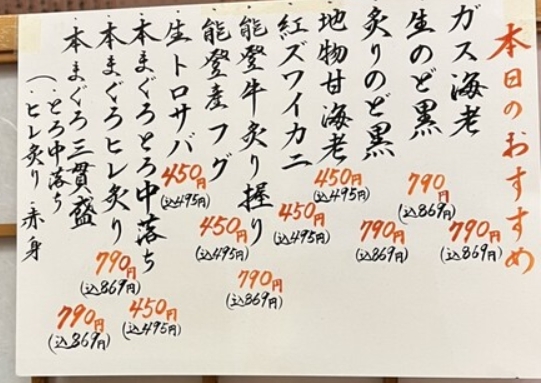 本日のおすすめ
ガス海老 790円 (込869円)
生のど黒 790円 (込869円)
炙りのど黒 790円 (込869円)
地物甘海老 450円 (込495円)
紅ズワイカニ 450円 (込495円)
能登牛炙り握り 790円 (込869円)
能登産フグ 450円 (込495円)
生トロサバ 450円 (込495円)
本まぐろとろ中落ち 450円 (込495円)
本まぐろヒレ炙り 790円 (込869円)
本まぐろ三貫盛 790円 (込869円)
(・とろ中落ち
・ヒレ炙り・赤身